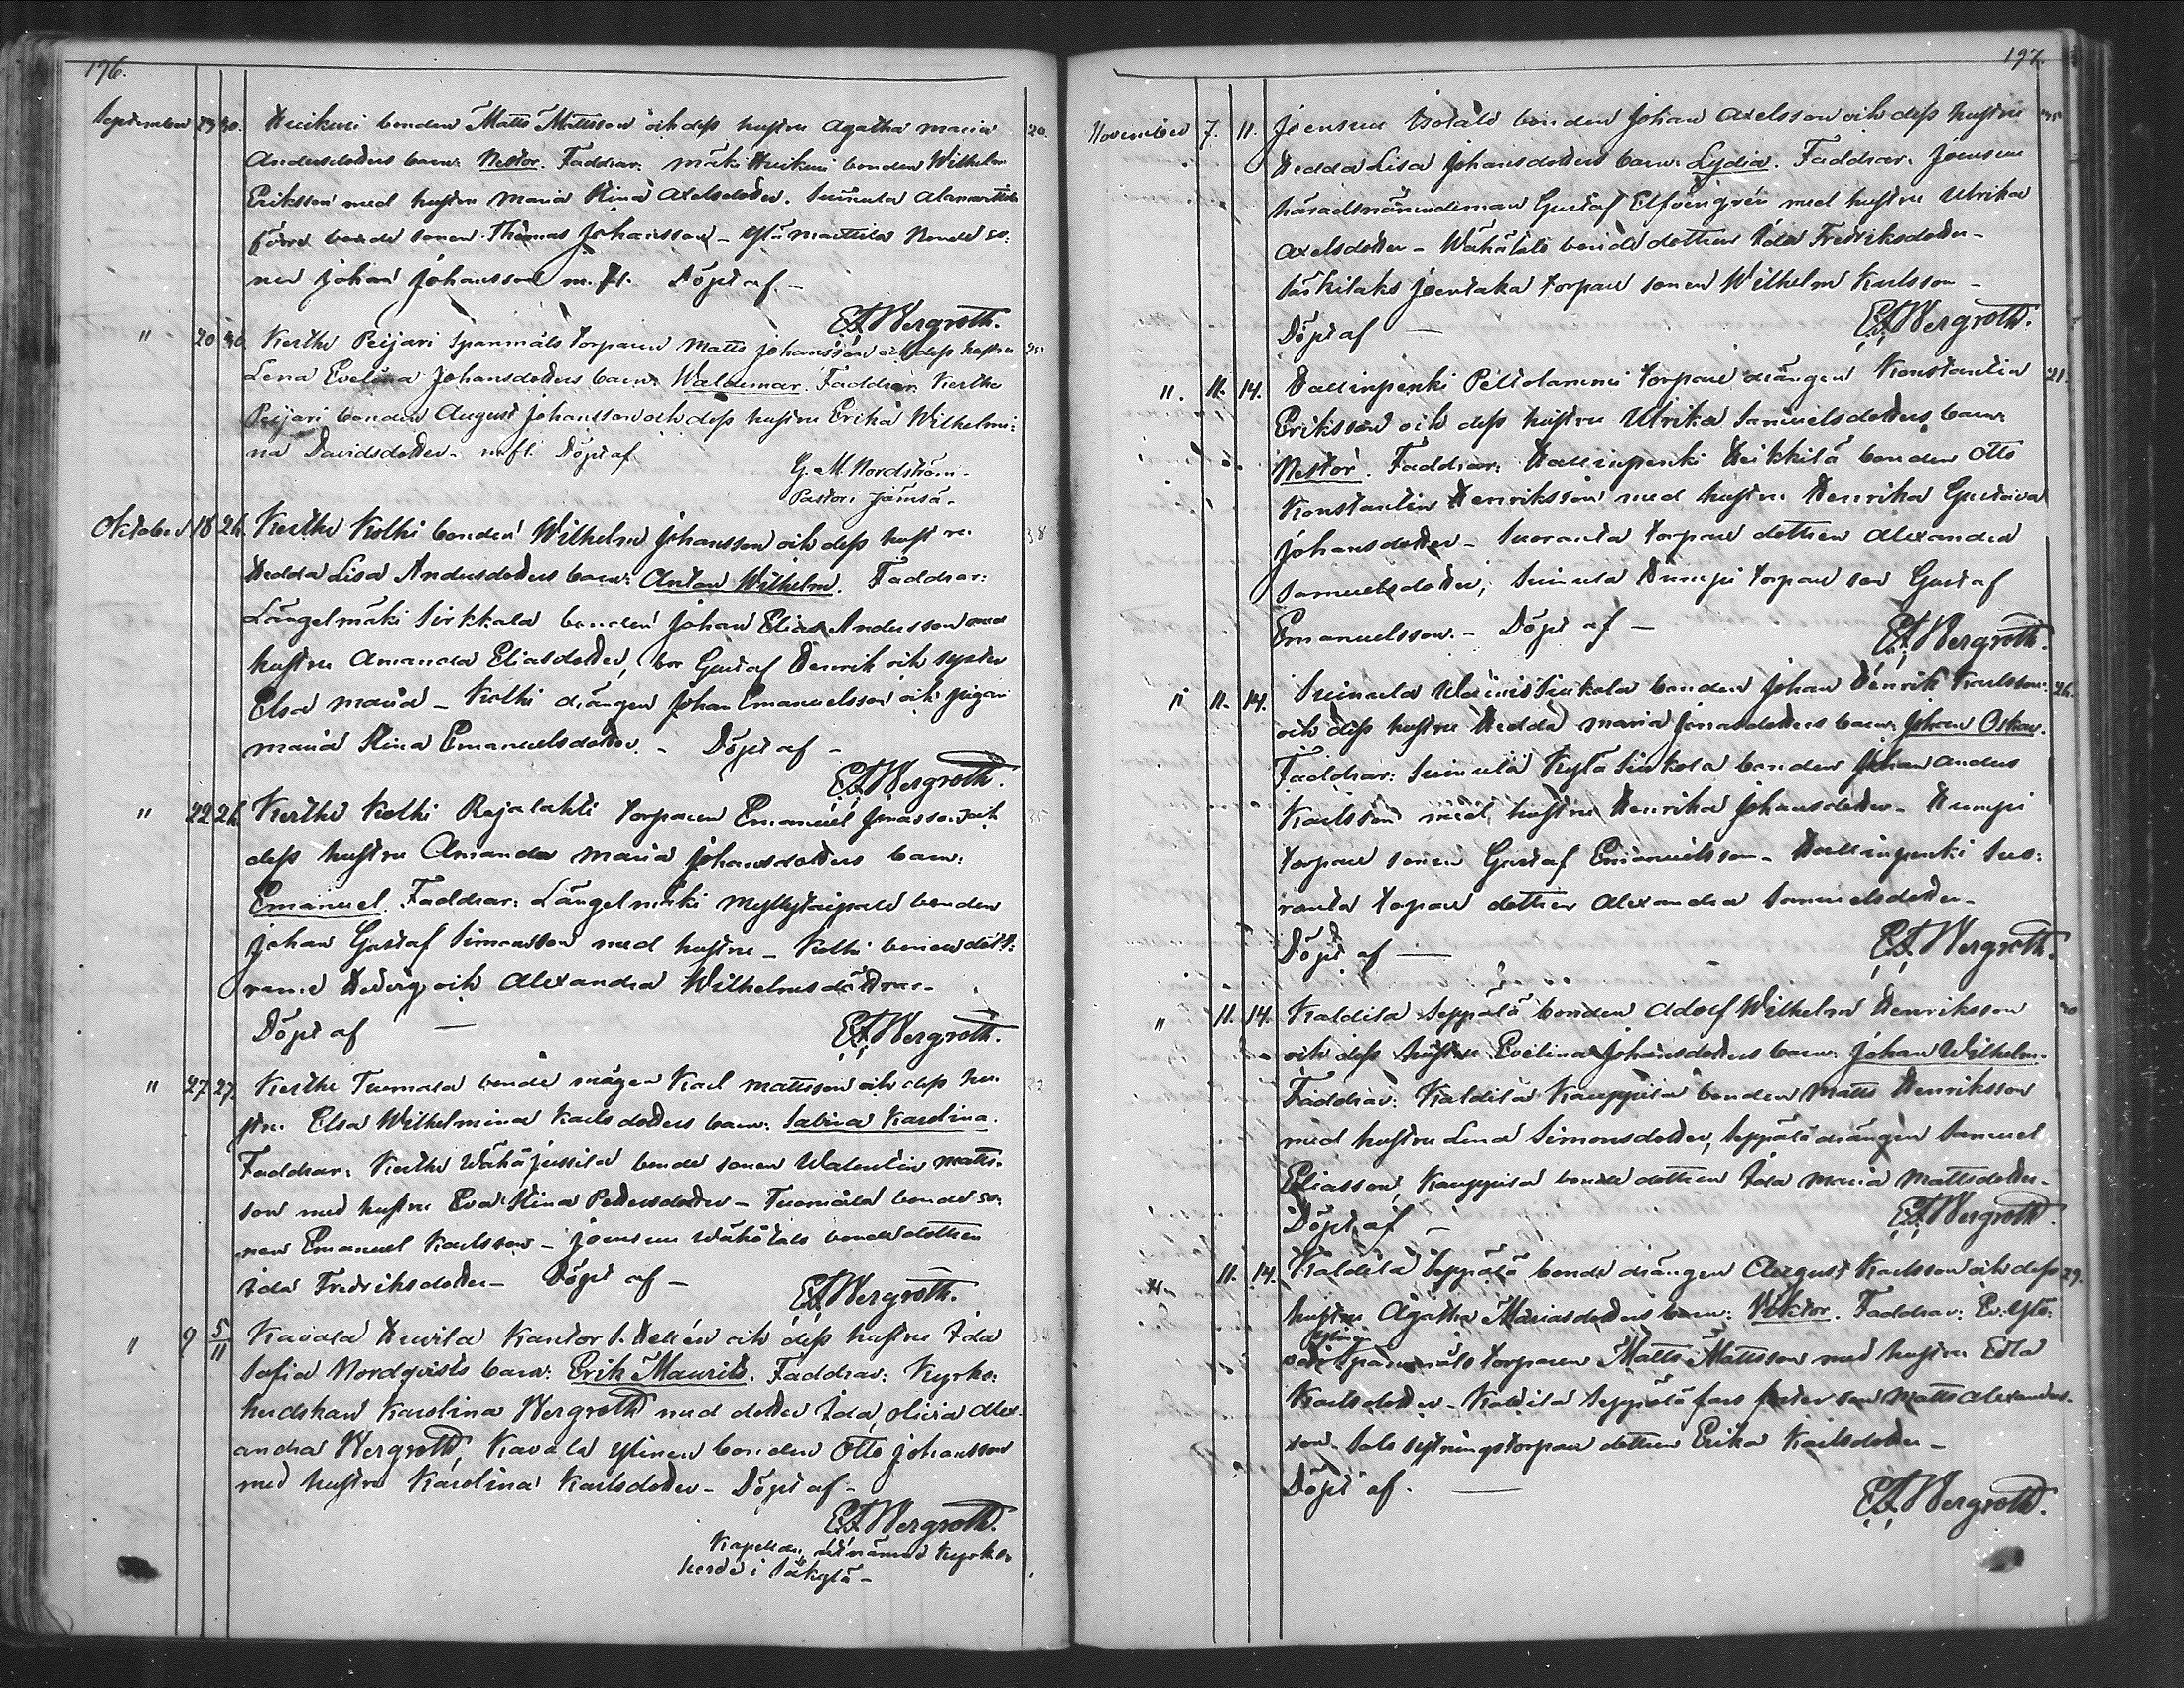 196.
September 29 30. Huikuri bonden Matts Mattsson och dess hustru Agatha Maria 20.
Andersdotters barn: Nestor. Faddrar: Mäki Huikuri bonden Wilhelm
Eriksson med hustru Maria Stina Axelsdotter. Suinula Alamarttila
förra bonde sonen Thomas Johansson - Ylimarttila bonde so:
nen Johan Johansson m. fl. Döpt af -
E A Wergroth.
" 20 30. Kertte Peijari Spannmåls torparen Matts Johansson och dess hustru
Lena Evelina Johansdotters barn: Waldemar. Faddrar: Kertte
Peijari bonden August Johansson och dess hustru Erika Wilhelmi:
na Davidsdotter - m. fl. Döpt af
G. M. Nordström -
Pastor i Jämsä -
Oktober 18 26. Kertte Kolhi bonden Wilhelm Johansson och dess hustru 38
Hedda Lisa Andersdotters barn: Anton Wilhelm. Faddrar:
Längelmäki Sirkkala bonden Johan Elias Andersson med
hustru Amanda Eliasdotter, bror Gustaf Henrik och syster
Elsa Maria - Kolhi drängen Johan Emanuelsson och pigan
Maria Stina Emanuelsdotter. - Döpt af -
E A Wergroth.
" 22 26 Kertte Kolhi Rajalahti torparen Emanuel Jonasson och
dess hustru Amanda Maria Johansdotters barn:
Emanuel. Faddrar: Längelmäki Myllytaipale bonden
Johan Gustaf Simonsson med hustru - Kolhi bonden dött:
rarne Hedvig och Alexandra Wilhelmsdöttrar -
Döpt af — E A Wergroth.
" 27 27. Kertte Tuomala bonde mågen Karl Mattsson och dess hu:
stru Elsa Wilhelmina Karlsdotters barn: Sabina Karolina.
Faddrar: Kertte Wähäjussila bonde sonen Walentin Matts:
son med hustru Eva Stina Pettersdotter - Tuomala bonde so:
nen Emanuel Karlsson - Joensuu Wähätalo bonde dottren
Ida Fredriksdotter - Döpt af -
E A Wergroth.
" 9 5/11 Kavala Huvila Kantor J. Hellén och dess hustru Ida
Sofia Nordqvists barn: Erik Maurits. Faddrar: Kyrko:
herdskan Karolina Wergroth med dotter Ida Olivia Alex:
andra Wergroth, Kavala Ylinen bonden Otto Johansson
med hustru Karolina Karlsdotter - Döpt af -
E A Wergroth.
Kapellan, utnämnd Kyrko
herde i Säkylä -
197.
November 7. 11. Joensuu Isotalo bonden Johan Axelsson och dess hustru
Hedda Lisa Johansdotters barn: Lydia. Faddrar: Joensuu
häradsnämndeman Gustaf Elfvengrén med hustru Ulrika
Axelsdotter - Wähätalo bonde dottren Ida Fredriksdotter -
Säkilaks Joentaka torpare sonen Wilhelm Karlsson -
Döpt af — E A Wergroth.
" 11. 14. Hallinpenki Peltolammi torpare drängen Konstantin 21.
Eriksson och dess hustru Ulrika Samuelsdotters barn:
Nestor. Faddrar: Hallinpenki Heikkilä bonden Otto
Konstantin Henriksson med hustru Henrika Gustava
Johansdotter - Suoranta torpare dottren Alexandra
Samuelsdotter, Suinula Humpi torpare son Gustaf
Emanuelsson. - Döpt af -
E A Wergroth.
" 11. 14. Suinula Uotinis Sinkola bonden Johan Henrik Karlsson 26.
och dess hustru Hedda Maria Jonasdotters barn: Johan Oskar.
Faddrar: Suinula Kylä Sinkola bonden Johan Anders
Karlsson med hustru Henrika Johansdotter - Humpi
torpare sonen Gustaf Emanuelsson - Hallinpenki Suo:
ranta torpare dottren Alexandra Samuelsdotter -
Döpt af — E A Wergroth.
" 11. 14. Kaldila Seppälä bonden Adolf Wilhelm Henriksson
och dess hustru Evelina Johansdotters barn: Johan Wilhelm.
Faddrar: Kaldila Kauppila bonden Matts Henriksson
med hustru Lena Simonsdotter, Seppälä drängen Samuel
Eliasson, Kauppila bonde dottren Ida Maria Mattsdotter -
Döpt af - E A Wergroth.
" 11. 14. Kaldila Seppälä bonde drängen August Karlsson och dess 29.
hustru Agatha Mariasdotters barn: Viktor. Faddrar:
Spannmåls torparen Matts Mattsson med hustru Edla
Karlsdotter - Kaldila Seppälä fars foster son Matts Alexanders:
son. Salo sytningstorpare dottren Erika Karlsdotter -
Döpt af. —
E A Wergroth.